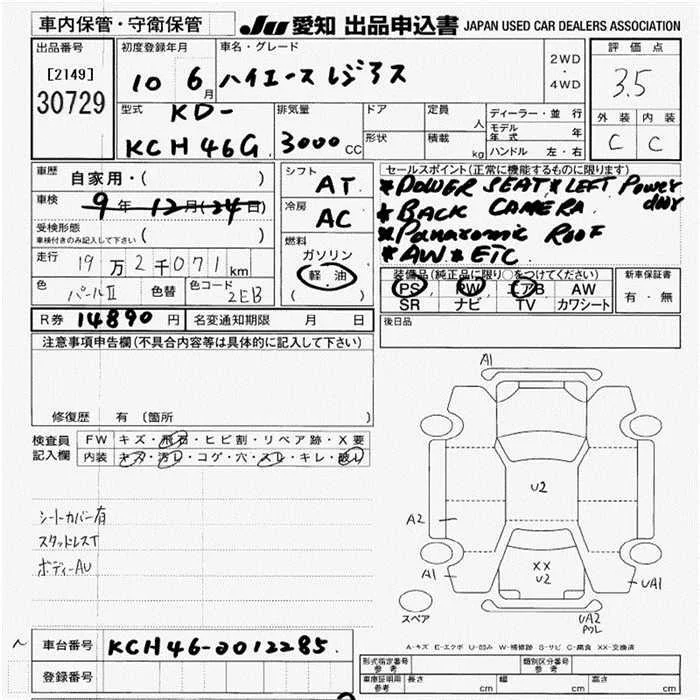 車内保管・守衛保管 JU 愛知 出品申込書 JAPAN USED CAR DEALERS ASSOCIATION
出品番号 初度登録年月 車名・グレード 2WD・4WD 評価点
[2149] 10 6月 ハイエース レジアス 3.5
30729
型式 KD- 排気量 ドア 定員 人 ディーラー・並行 外装 内装
KCH46G 3000CC 形状 積載 kg モデル年式 年 C C
ハンドル 左・右
車歴 自家用・( ) シフト AT セールスポイント(正常に機能するものに限ります)
車検 9年12月(24日) *POWER SEAT * LEFT Power door
受検形態 ( ) 冷房 AC *BACK CAMERA
車検付きのみ記入して下さい *Panaromic ROOF
走行 19万2千071km 燃料 ガソリン *AW * ETC
軽油 装備品(純正品に限り○をつけてください) 新車保証書
色 パールII 色替 色コード 2EB ( ) PS PW エアB AW 有・無
SR ナビ TV カワシート
R券 14890円 名変通知期限 月 日 後日品
注意事項申告欄(不具合内容等は具体的に記入して下さい)
修復歴 有 (箇所 )
検査員記入欄 FW キズ・飛石・ヒビ割・リペア跡・X要
内装 キズ・汚レ・コゲ・穴・スレ・キレ・破レ
シートカバー有
スタッドレスT
ボディーAU
A1
U2
A2
XX
U2
A1
UA1
スペア
UA2
A-キズ E-エクボ U-凹み W-補修跡 S-サビ C-腐食 XX-交換済
車台番号 KCH46-2012285
登録番号
形式指定番号 参考 類別区分番号 参考
車庫証明用 参考 長さ cm 幅 cm 高さ cm